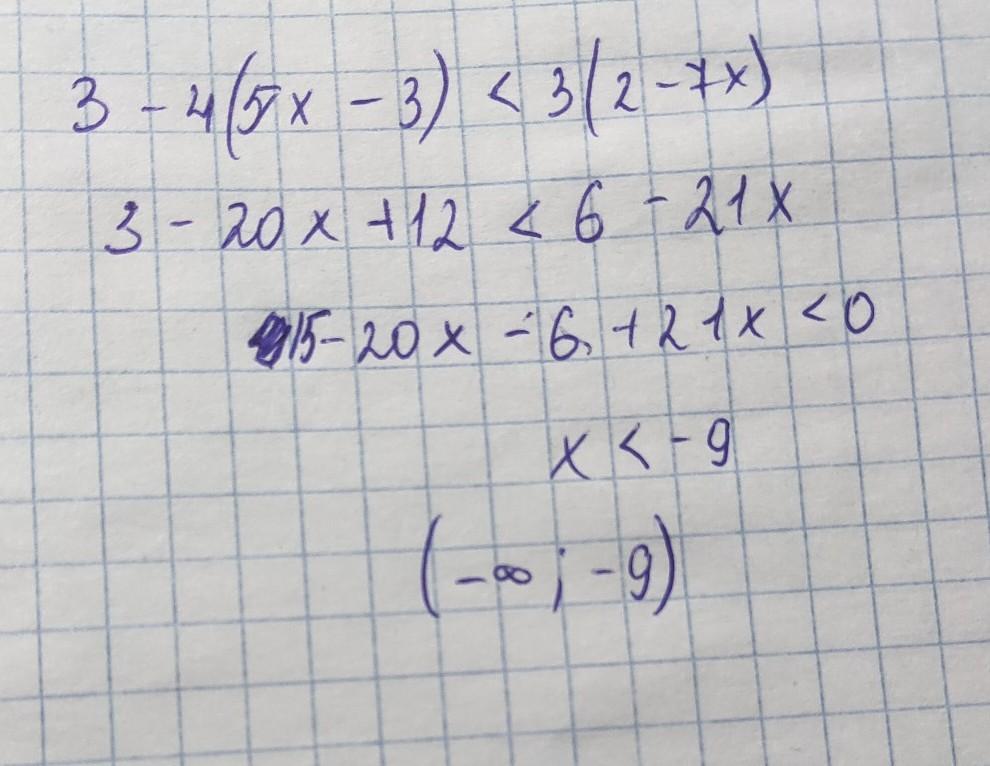 3 - 4(5x - 3) < 3(2 - 7x)
3 - 20x + 12 < 6 - 21x
15 - 20x - 6 + 21x < 0
x < -9
(-∞; -9)